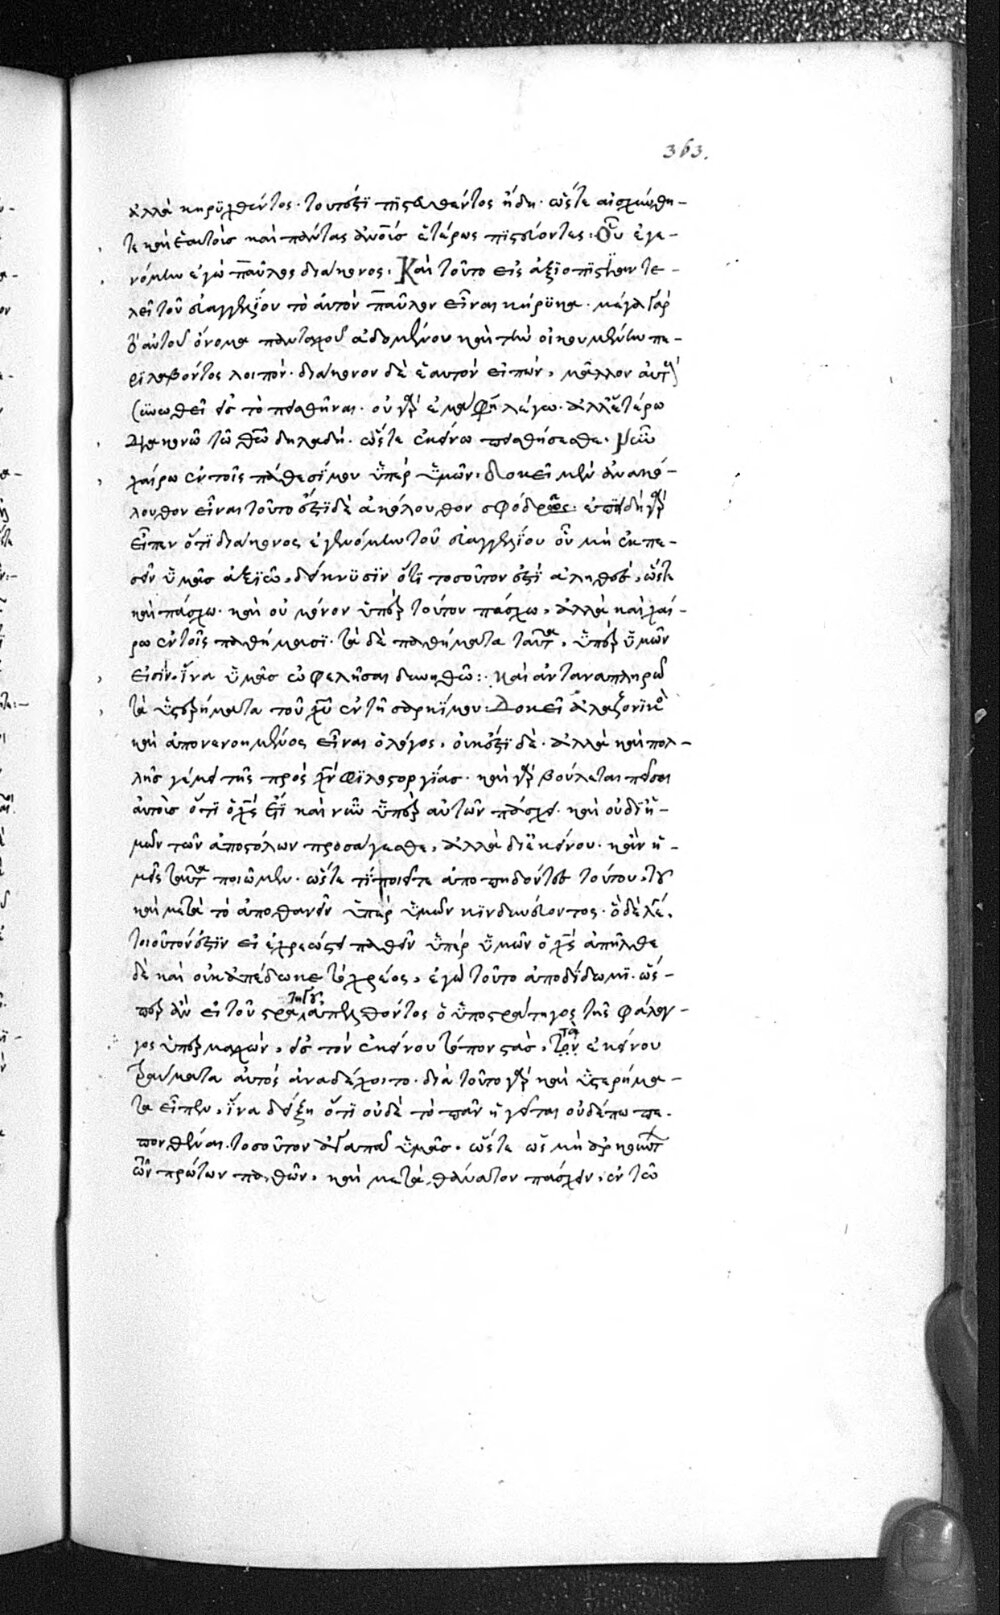 363.
ἀλλὰ κηρυχθέντος· τουτέστι πιστευθέντος ἤδη· ὥστε αἰσχύνθη-
τε καὶ ἑαυτοὺς καὶ πάντας ἀνους ἑτέρως πιστεύοντες· Οὗ ἐγε-
νόμην ἐγὼ παῦλος διάκονος· Καὶ τοῦτο εἰς ἀξιοπιστίαν τε-
λεῖ τοῦ εὐαγγελίου τὸ αὐτὸν παῦλον εἶναι κήρυκα· μέγα γὰρ
αὐτοῦ ὄνομα πανταχοῦ ἀδομένου καὶ τὴν οἰκουμένην πε-
ριλαβόντος λοιπόν· διάκονον δὲ ἑαυτὸν εἰπών, μᾶλλον αὐτοὺς
συνωθεῖ εἰς τὸ πεισθῆναι· οὐ γὰρ ἐμὰ φησὶ λέγω· ἀλλ' ἑτέρω
διακονῶ τῶ θεῶ δηλαδή· ὥστε ἐκείνω πείθεσθε· Νῦν
χαίρω ἐν τοῖς πάθεσί μου ὑπὲρ ὑμῶν· δοκεῖ μὲν ἀνακό-
λουθον εἶναι τοῦτο ἔστι δὲ ἀκόλουθον σφόδρα· ἐπειδὴ γὰρ
εἶπεν ὅτι διάκονος ἐγενόμην τοῦ εὐαγγελίου οὗ μὴ ἐκπε-
σεῖν ὑμᾶς ἀξιῶ, δείκνυσιν ὅτι τοσοῦτον ἐστὶ ἀληθὲς, ὥστε
καὶ πάσχω· καὶ οὐ μόνον ὑπὲρ τούτου πάσχω, ἀλλὰ καὶ χαί-
ρω ἐν τοῖς παθήμασι· τὰ δὲ παθήματα ταῦτα, ὑπὲρ ὑμῶν
εἰσίν· ἵνα ὑμᾶς ὠφελῆσαι δυνηθῶ:· Καὶ ἀνταναπληρῶ
τὰ ὑστερήματα τοῦ χυ ἐν τῆ σαρκί μου· Δοκεῖ ἀλαζονικὸς
καὶ ἀπονενοημένος εἶναι ὁ λόγος, οὐκ ἔστι δὲ· ἀλλὰ καὶ πολ-
λῆς γέμει τῆς πρὸς χν φιλοστοργίας· καὶ γὰρ βούλεται πεῖσαι
αὐτοὺς ὅτι ὁ χς ἐστὶ καὶ νῦν ὑπὲρ αὐτῶν πάσχει· καὶ οὐ δι' ἡ-
μῶν τῶν ἀποστόλων προσάγεσθε, ἀλλὰ δι' ἐκείνου· κἂν ἡ-
μεῖς ταῦτα ποιῶμεν· ὥστε τί ποιεῖτε ἀποπηδῶντες τούτου, τοῦ
καὶ μετὰ τὸ ἀποθανεῖν ὑπὲρ ὑμῶν κινδυνεύοντος· ὁ δὲ λέγει,
τοιοῦτόν ἐστιν εἰ ἐχρεώστει παθεῖν ὑπὲρ ὑμῶν ὁ χς ἀπῆλθε
δὲ καὶ οὐκ ἀπέδωκε τὸ χρέος, ἐγὼ τοῦτο ἀποδίδωμι· ὥσ-
περ ἂν εἰ τοῦ στρατηγοῦ ἀπελθόντος ὁ ὑποστράτηγος τῆς φάλαγ-
γος ὑπερμαχῶν, εἰς τὸν ἐκείνου τόπον στὰς, τὰ ἐκείνου
τραύματα αὐτὸς ἀναδέχοιτο· διὰ τοῦτο γὰρ καὶ ὑστερήμα-
τα εἶπεν, ἵνα δείξη ὅτι οὐδὲ τὸ πᾶν ἡγεῖται οὐδέπω πε-
πονθέναι· τοσοῦτον ἀγαπᾶ ὑμᾶς· ὥστε ὡς μὴ ἀρκούντων
τῶν πρώτων παθῶν, καὶ μετὰ θάνατον πάσχειν, ἐν τῶ